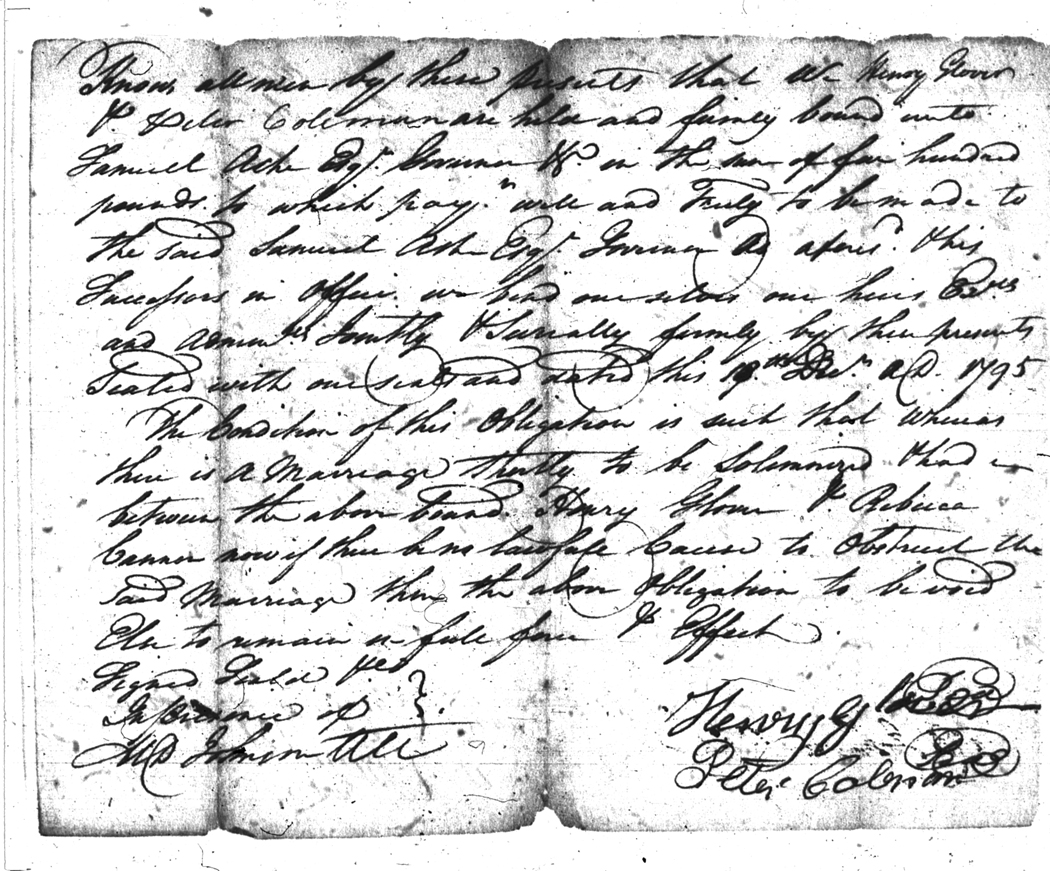 Know all men by these presents that We Henry Glover
& Peter Coleman are held and firmly bound unto
Samuel Ashe Esqr. Governor &c in the sum of five hundred
pounds to which paymn. well and Truly to be made to
the said Samuel Ashe Esqr. Governor as afores.d & his
Successors in Office we bind our selves our heirs Exrs
and Adminrs Jointly & Severally firmly by these presents
Sealed with our seals and dated this Decr. A.D. 1795
The Condition of this Obligation is such that Whereas
there is a Marriage shortly to be Solemnized & had
between the above bound Henry Glover & Rebecca
Cannon now if there be no lawfull Cause to Obstruct the
said Marriage then the above Obligation to be void
Else to remain in full force & Effect.
Signed Seald &c
In Presence of
Johnson
Henry Glover Seal
Peter Coleman